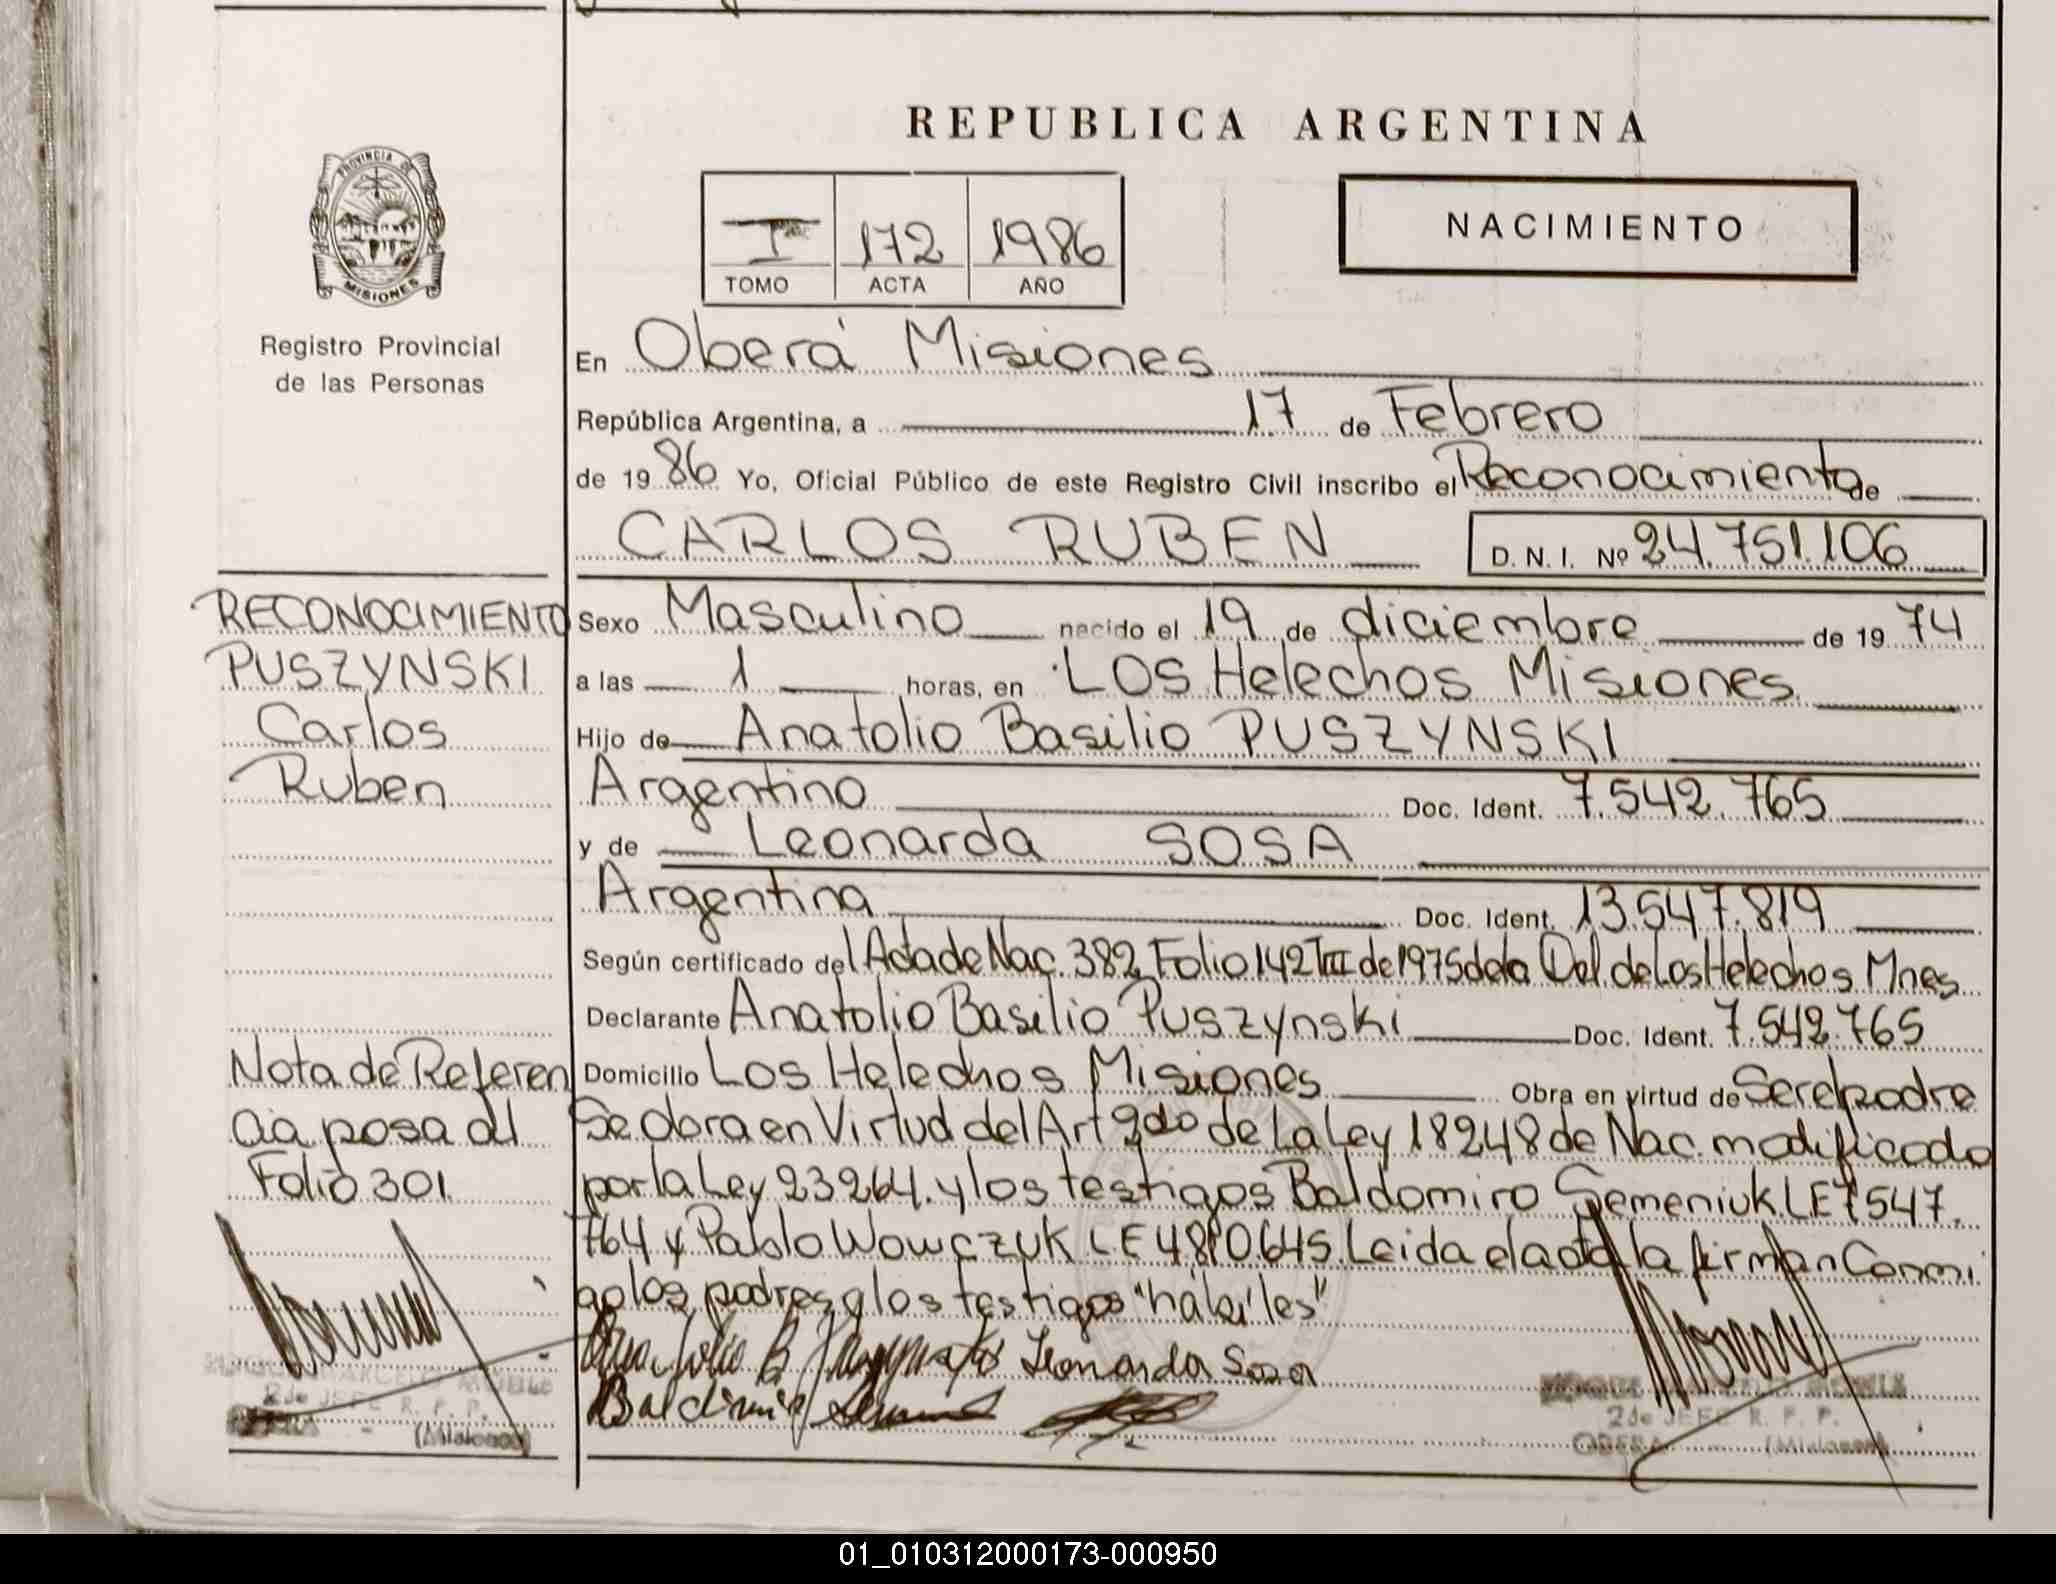 REPUBLICA ARGENTINA
PROVINCIA DE
MISIONES
Registro Provincial
de las Personas
I 172 1986
TOMO ACTA AÑO
NACIMIENTO
En Oberá Misiones
República Argentina, a 17 de Febrero
de 1986 Yo, Oficial Público de este Registro Civil inscribo el Reconocimiento de
CARLOS RUBEN D. N. I. Nº 24.751.106
Sexo Masculino nacido el 19 de diciembre de 1974
a las 1 horas, en Los Helechos Misiones
Hijo de Anatolio Basilio PUSZYNSKI
Argentino Doc. Ident. 7.542.765
y de Leonarda SOSA
Argentina Doc. Ident. 13.547.819
Según certificado del Acta de Nac. 382 Folio 142 T III de 1975 de la Del. de Los Helechos Mnes
Declarante Anatolio Basilio Puszynski Doc. Ident. 7.542.765
Domicilio Los Helechos Misiones Obra en virtud de Ser el padre
Se obra en Virtud del Art 2do de La Ley 18248 de Nac. modificado
por la Ley 23264. y los testigos Baldomiro Semeniuk LE 7547.
764 y Pablo Wowczuk LE 4810645. Leida el acta la firman Conmi
go los padres y los testigos "hábiles"
Leonarda Sosa
RECONOCIMIENTO
PUSZYNSKI
Carlos
Ruben
Nota de Referen
cia pasa al
Folio 301
2do JEFE R. P. P.
(Misiones)
2do JEFE R. P. P.
OBERA (Misiones)
01_010312000173-000950